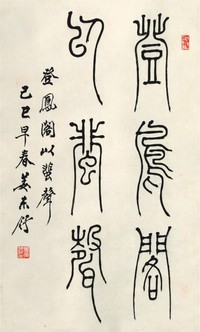 登鳳閣
以蜚聲
登鳳閣以蜚聲
己巳早春姜东舒